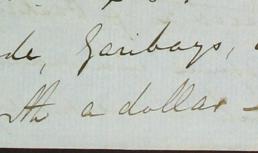 de, Garibays,
rth a dollar —